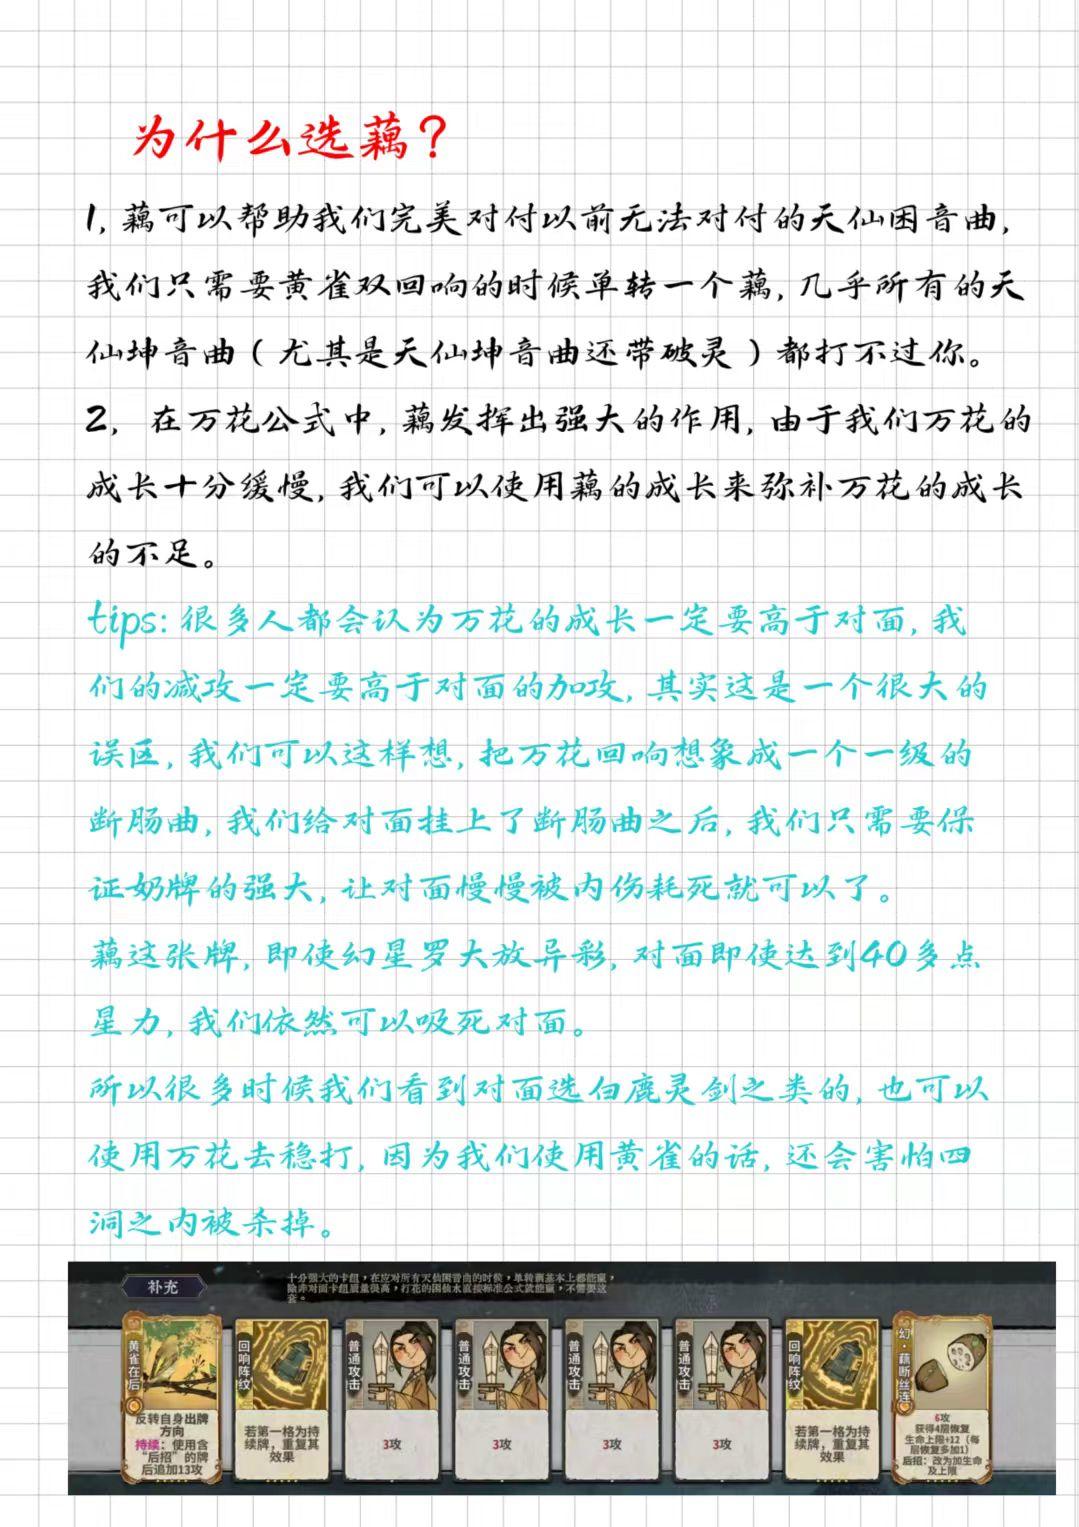 为什么选藕?
1,藕可以帮助我们完美对付以前无法对付的天仙困音曲,
我们只需要黄雀双回响的时候单转一个藕,几乎所有的天
仙坤音曲(尤其是天仙坤音曲还带破灵)都打不过你。
2, 在万花公式中,藕发挥出强大的作用,由于我们万花的
成长十分缓慢,我们可以使用藕的成长来弥补万花的成长
的不足。
tips:很多人都会认为万花的成长一定要高于对面,我
们的减攻一定要高于对面的加攻,其实这是一个很大的
误区,我们可以这样想,把万花回响想象成一个一级的
断肠曲,我们给对面挂上了断肠曲之后,我们只需要保
证奶牌的强大,让对面慢慢被内伤耗死就可以了。
藕这张牌,即使幻星罗大放异彩,对面即使达到40多点
星力,我们依然可以吸死对面。
所以很多时候我们看到对面选白鹿灵剑之类的,也可以
使用万花去稳打,因为我们使用黄雀的话,还会害怕四
洞之内被杀掉。
补充
十分强大的卡组,在应对所有天仙困音曲的时候,单转藕基本上都能赢,
除非对面卡组质量很高,打花的困仙水直接标准公式就能赢,不需要这
套。
黄雀在后
反转自身出牌
方向
持续:使用含
“后招”的牌
后追加13攻
回响阵纹
若第一格为持
续牌,重复其
效果
普通攻击
3攻
普通攻击
3攻
普通攻击
3攻
普通攻击
3攻
回响阵纹
若第一格为持
续牌,重复其
效果
幻·藕断丝连
6攻
获得4层恢复
生命上限+12(每
层恢复多加1)
后招:改为加生命
及上限